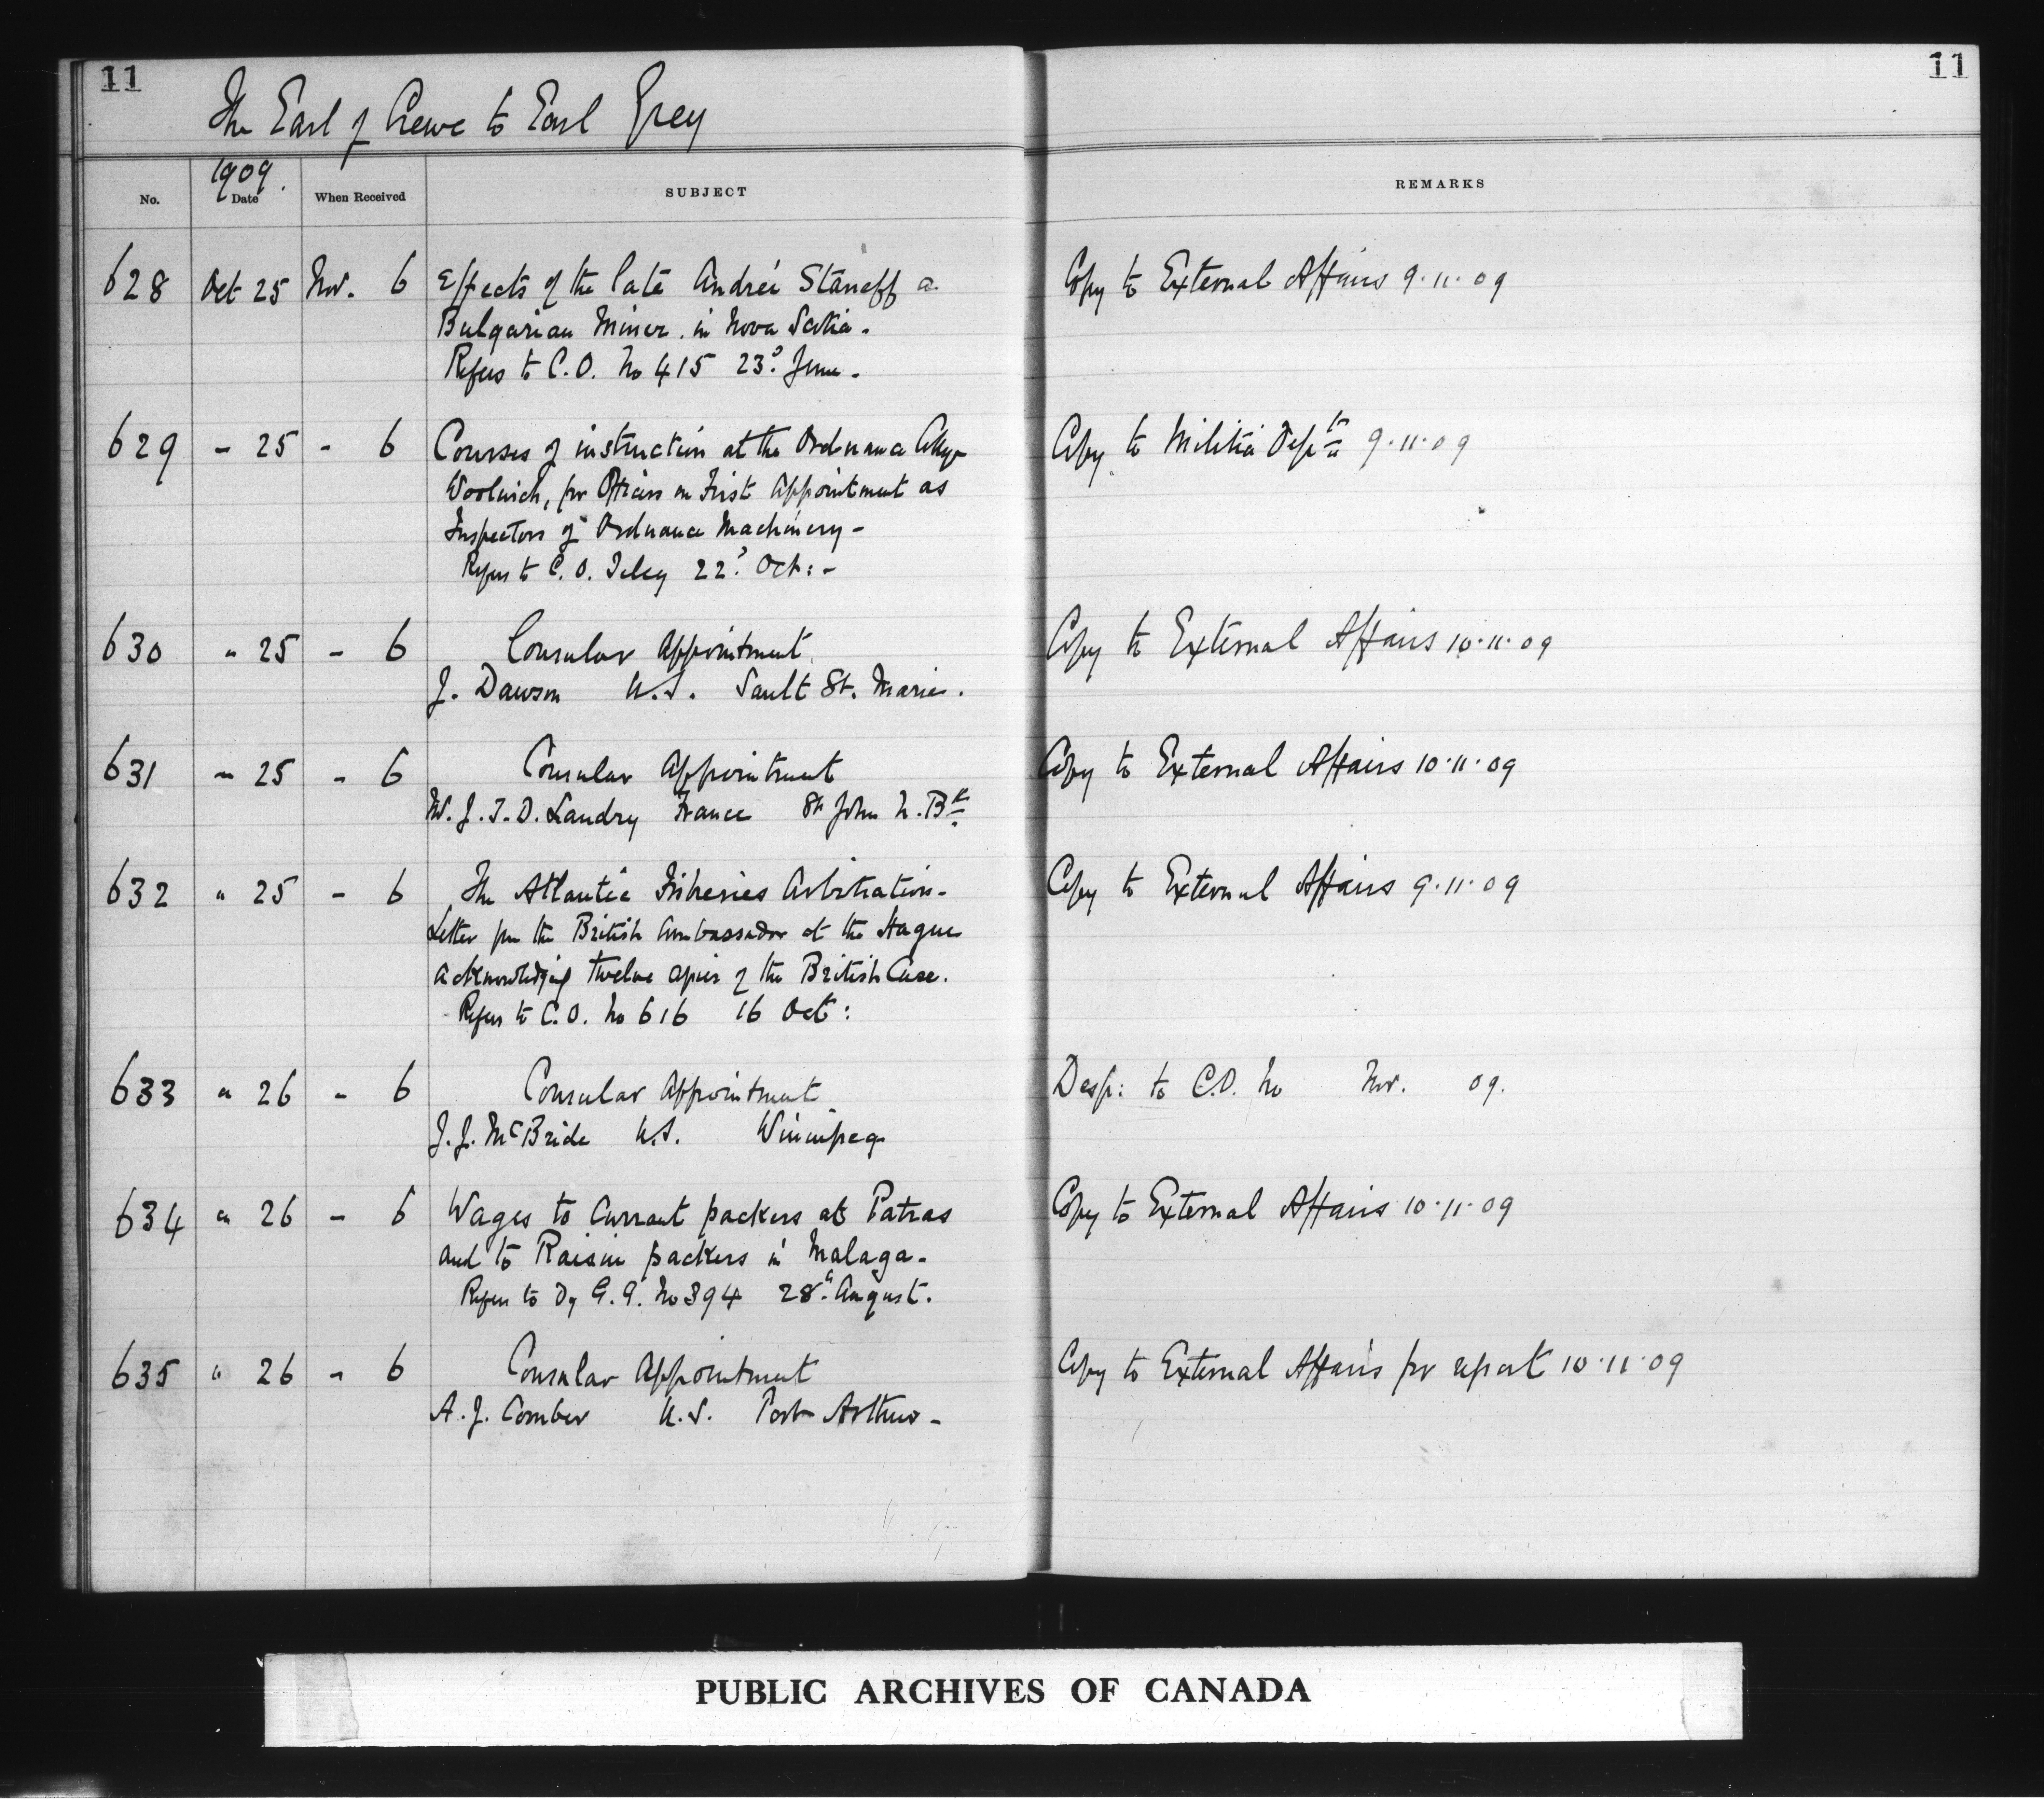 11 11
The Earl of Crewe to Earl Grey
1909.
No. Date When Received SUBJECT REMARKS
628 Oct 25 Nov. 6 Effects of the late Andréi Staneff a Copy to External Affairs 9.11.09
Bulgarian Miner in Nova Scotia.
Refers to C.O. No 415 23d June.
629 - 25 - 6 Courses of instruction at the Ordnance College Copy to Militia Deptt 9.11.09
Woolwich, for Officers on First Appointment as
Inspectors of Ordnance Machinery -
Refers to C.O. Teleg 22d Oct: -
630 " 25 - 6 Consular Appointment Copy to External Affairs 10.11.09
J. Dawson U.S. Sault St. Marie.
631 " 25 - 6 Consular Appointment Copy to External Affairs 10.11.09
M. J. T. D. Landry France St John N.Bk
632 " 25 - 6 The Atlantic Fisheries Arbitration - Copy to External Affairs 9.11.09
Letter from the British Ambassador at the Hague
acknowledging twelve copies of the British Case.
Refers to C.O. No 616 16 Oct:
633 " 26 - 6 Consular Appointment Desp: to C.O. No Nov. 09.
J. J. McBride U.S. Winnipeg
634 " 26 - 6 Wages to Currant packers at Patras Copy to External Affairs 10.11.09
and to Raisin packers in Malaga -
Refers to Dy G.G. No 394 28th August.
635 " 26 - 6 Consular Appointment Copy to External Affairs for report 10.11.09
A. J. Comber U.S. Port Arthur -
PUBLIC ARCHIVES OF CANADA